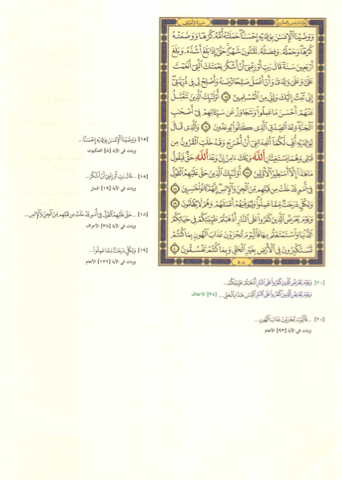 وَوَصَّيْنَا ٱلْإِنسَٰنَ بِوَٰلِدَيْهِ إِحْسَٰنًا حَمَلَتْهُ أُمُّهُۥ كُرْهًا وَوَضَعَتْهُ
كُرْهًا وَحَمْلُهُۥ وَفِصَٰلُهُۥ ثَلَٰثُونَ شَهْرًا حَتَّىٰٓ إِذَا بَلَغَ أَشُدَّهُۥ وَبَلَغَ
أَرْبَعِينَ سَنَةً قَالَ رَبِّ أَوْزِعْنِىٓ أَنْ أَشْكُرَ نِعْمَتَكَ ٱلَّتِىٓ أَنْعَمْتَ
عَلَىَّ وَعَلَىٰ وَٰلِدَىَّ وَأَنْ أَعْمَلَ صَٰلِحًا تَرْضَىٰهُ وَأَصْلِحْ لِى فِى ذُرِّيَّتِىٓ
إِنِّى تُبْتُ إِلَيْكَ وَإِنِّى مِنَ ٱلْمُسْلِمِينَ ١٥ أُو۟لَٰٓئِكَ ٱلَّذِينَ نَتَقَبَّلُ
عَنْهُمْ أَحْسَنَ مَا عَمِلُوا۟ وَنَتَجَاوَزُ عَن سَيِّـَٔاتِهِمْ فِىٓ أَصْحَٰبِ
ٱلْجَنَّةِ وَعْدَ ٱلصِّدْقِ ٱلَّذِى كَانُوا۟ يُوعَدُونَ ١٦ وَٱلَّذِى قَالَ
لِوَٰلِدَيْهِ أُفٍّ لَّكُمَآ أَتَعِدَانِنِىٓ أَنْ أُخْرَجَ وَقَدْ خَلَتِ ٱلْقُرُونُ مِن
قَبْلِى وَهُمَا يَسْتَغِيثَانِ ٱللَّهَ وَيْلَكَ ءَامِنْ إِنَّ وَعْدَ ٱللَّهِ حَقٌّ فَيَقُولُ
مَا هَٰذَآ إِلَّآ أَسَٰطِيرُ ٱلْأَوَّلِينَ ١٧ أُو۟لَٰٓئِكَ ٱلَّذِينَ حَقَّ عَلَيْهِمُ ٱلْقَوْلُ
فِىٓ أُمَمٍ قَدْ خَلَتْ مِن قَبْلِهِم مِّنَ ٱلْجِنِّ وَٱلْإِنسِ إِنَّهُمْ كَانُوا۟ خَٰسِرِينَ ١٨
وَلِكُلٍّ دَرَجَٰتٌ مِّمَّا عَمِلُوا۟ وَلِيُوَفِّيَهُمْ أَعْمَٰلَهُمْ وَهُمْ لَا يُظْلَمُونَ ١٩
وَيَوْمَ يُعْرَضُ ٱلَّذِينَ كَفَرُوا۟ عَلَى ٱلنَّارِ أَذْهَبْتُمْ طَيِّبَٰتِكُمْ فِى حَيَاتِكُمُ
ٱلدُّنْيَا وَٱسْتَمْتَعْتُم بِهَا فَٱلْيَوْمَ تُجْزَوْنَ عَذَابَ ٱلْهُونِ بِمَا كُنتُمْ
تَسْتَكْبِرُونَ فِى ٱلْأَرْضِ بِغَيْرِ ٱلْحَقِّ وَبِمَا كُنتُمْ تَفْسُقُونَ ٢٠
٥٠٤
[١٥] وَوَصَّيْنَا ٱلْإِنسَٰنَ بِوَٰلِدَيْهِ إِحْسَٰنًا...
وردت في الآية [٨] العنكبوت
[١٥] ...قَالَ رَبِّ أَوْزِعْنِىٓ أَنْ أَشْكُرَ...
وردت في الآية [١٩] النمل
[١٨] ...حَقَّ عَلَيْهِمُ ٱلْقَوْلُ فِىٓ أُمَمٍ قَدْ خَلَتْ مِن قَبْلِهِم مِّنَ ٱلْجِنِّ وَٱلْإِنسِ...
وردت في الآية [٣٨] الأعراف
[١٩] وَلِكُلٍّ دَرَجَٰتٌ مِّمَّا عَمِلُوا۟...
وردت في الآية [١٣٢] الأنعام
[٢٠] وَيَوْمَ يُعْرَضُ ٱلَّذِينَ كَفَرُوا۟ عَلَى ٱلنَّارِ أَذْهَبْتُمْ طَيِّبَٰتِكُمْ...
وَيَوْمَ يُعْرَضُ ٱلَّذِينَ كَفَرُوا۟ عَلَى ٱلنَّارِ أَلَيْسَ هَٰذَا بِٱلْحَقِّ... [٣٤] الأحقاف
[٢٠] ...فَٱلْيَوْمَ تُجْزَوْنَ عَذَابَ ٱلْهُونِ...
وردت في الآية [٩٣] الأنعام